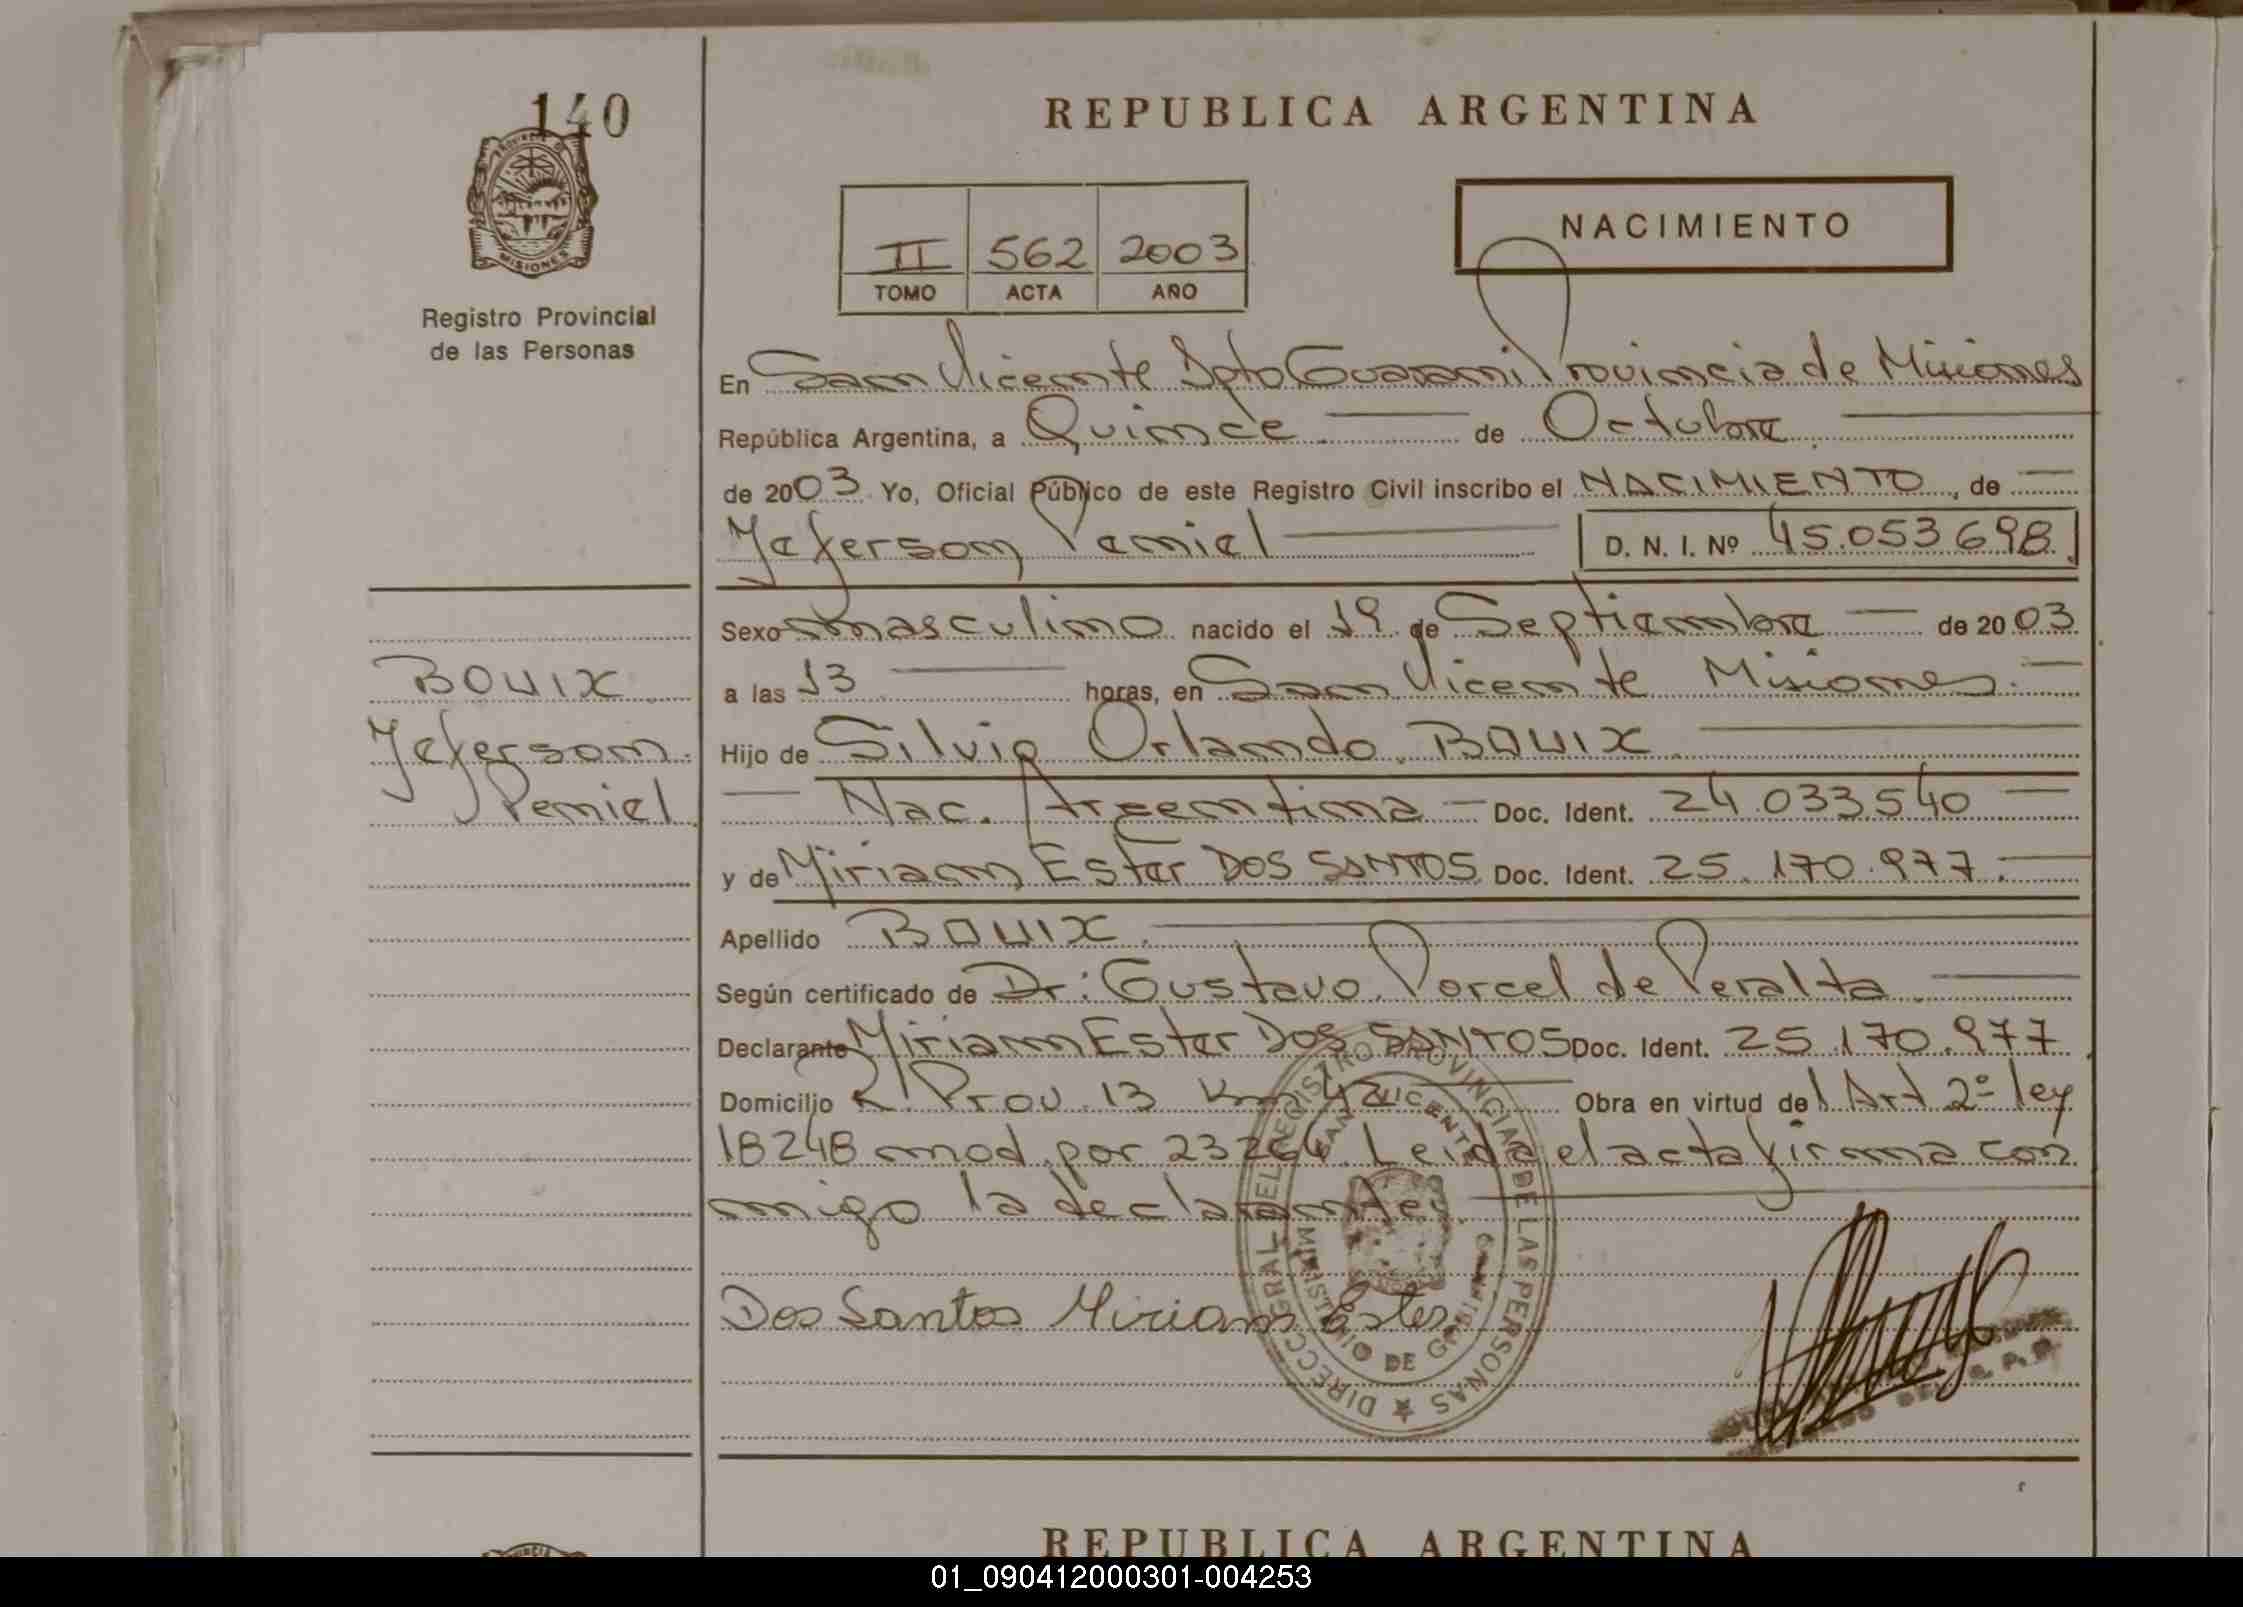 140
PROVINCIA D
MISIONES
Registro Provincial
de las Personas
REPUBLICA ARGENTINA
II 562 2003
TOMO ACTA AÑO
NACIMIENTO
En San Vicente Dpto Guarani Provincia de Misiones
República Argentina, a Quince de Octubre
de 2003 Yo, Oficial Público de este Registro Civil inscribo el NACIMIENTO, de
Jeferson Peniel D. N. I. Nº 45.053698
Sexo masculino nacido el 19 de Septiembre de 2003
a las 13 horas, en San Vicente Misiones
Hijo de Silvio Orlando BOUIX
Nac. Argentina Doc. Ident. 24.033540
y de Miriam Ester DOS SANTOS Doc. Ident. 25.170.977
Apellido BOUIX
Según certificado de Dr: Gustavo Porcel de Peralta
Declarante Miriam Ester DOS SANTOS Doc. Ident. 25.170.977
Domicilio R. Prov. 13 Km 42 Obra en virtud del Art 2º ley
18248 mod. por 23264. Leida el acta firma con
migo la declarante.
Dos Santos Miriam Ester
BOUIX
Jeferson
Peniel
DIRECC. GRAL DEL REGISTRO PROVINCIAL DE LAS PERSONAS
SAN VICENTE
MINISTERIO DE GOBIERNO
REPUBLICA ARGENTINA
01_090412000301-004253